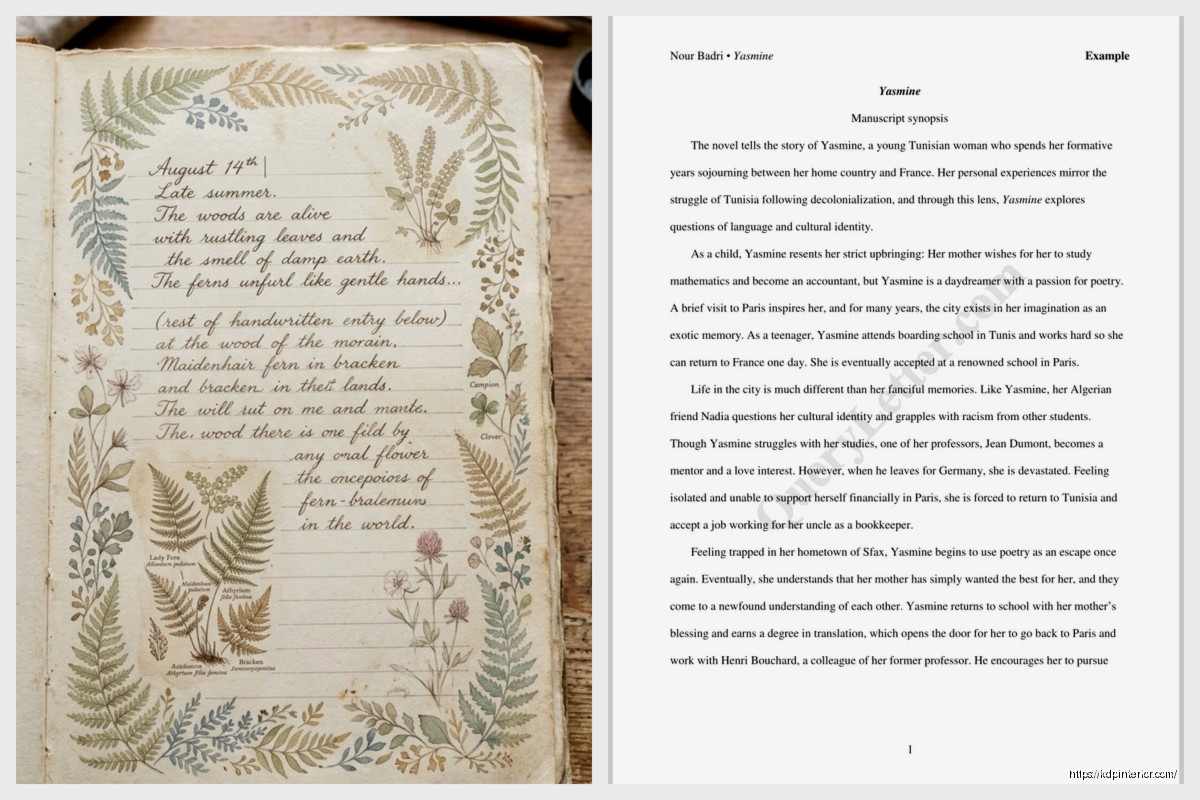 August 14th
Late summer.
The woods are alive
with rustling leaves and
the smell of damp earth.
The ferns unfurl like gentle hands...
(rest of handwritten entry below)
at the wood of the morain,
Maidenhair fern in bracken
and bracken in lands.
The will on me and
The, wood there is one fild by
any flower
the of
fern-
in the world.
Campion
Clover
Lady Fern
Athyrium
Bracken
Nour Badri • Yasmine
Example
Yasmine
Manuscript synopsis
The novel tells the story of Yasmine, a young Tunisian woman who spends her formative
years sojourning between her home country and France. Her personal experiences mirror the
struggle of Tunisia following decolonialization, and through this lens, Yasmine explores
questions of language and cultural identity.
As a child, Yasmine resents her strict upbringing: Her mother wishes for her to study
mathematics and become an accountant, but Yasmine is a daydreamer with a passion for poetry.
A brief visit to Paris inspires her, and for many years, the city exists in her imagination as an
exotic memory. As a teenager, Yasmine attends boarding school in Tunis and works hard so she
can return to France one day. She is eventually accepted at a renowned school in Paris.
Life in the city is much different than her fanciful memories. Like Yasmine, her Algerian
friend Nadia questions her cultural identity and grapples with racism from other students.
Though Yasmine struggles with her studies, one of her professors, Jean Dumont, becomes a
mentor and a love interest. However, when he leaves for Germany, she is devastated. Feeling
isolated and unable to support herself financially in Paris, she is forced to return to Tunisia and
accept a job working for her uncle as a bookkeeper.
Feeling trapped in her hometown of Sfax, Yasmine begins to use poetry as an escape once
again. Eventually, she understands that her mother has simply wanted the best for her, and they
come to a newfound understanding of each other. Yasmine returns to school with her mother's
blessing and earns a degree in translation, which opens the door for her to go back to Paris and
work with Henri Bouchard, a colleague of her former professor. He encourages her to pursue
QueryLetter.com
1
https://kdpinterior.com/